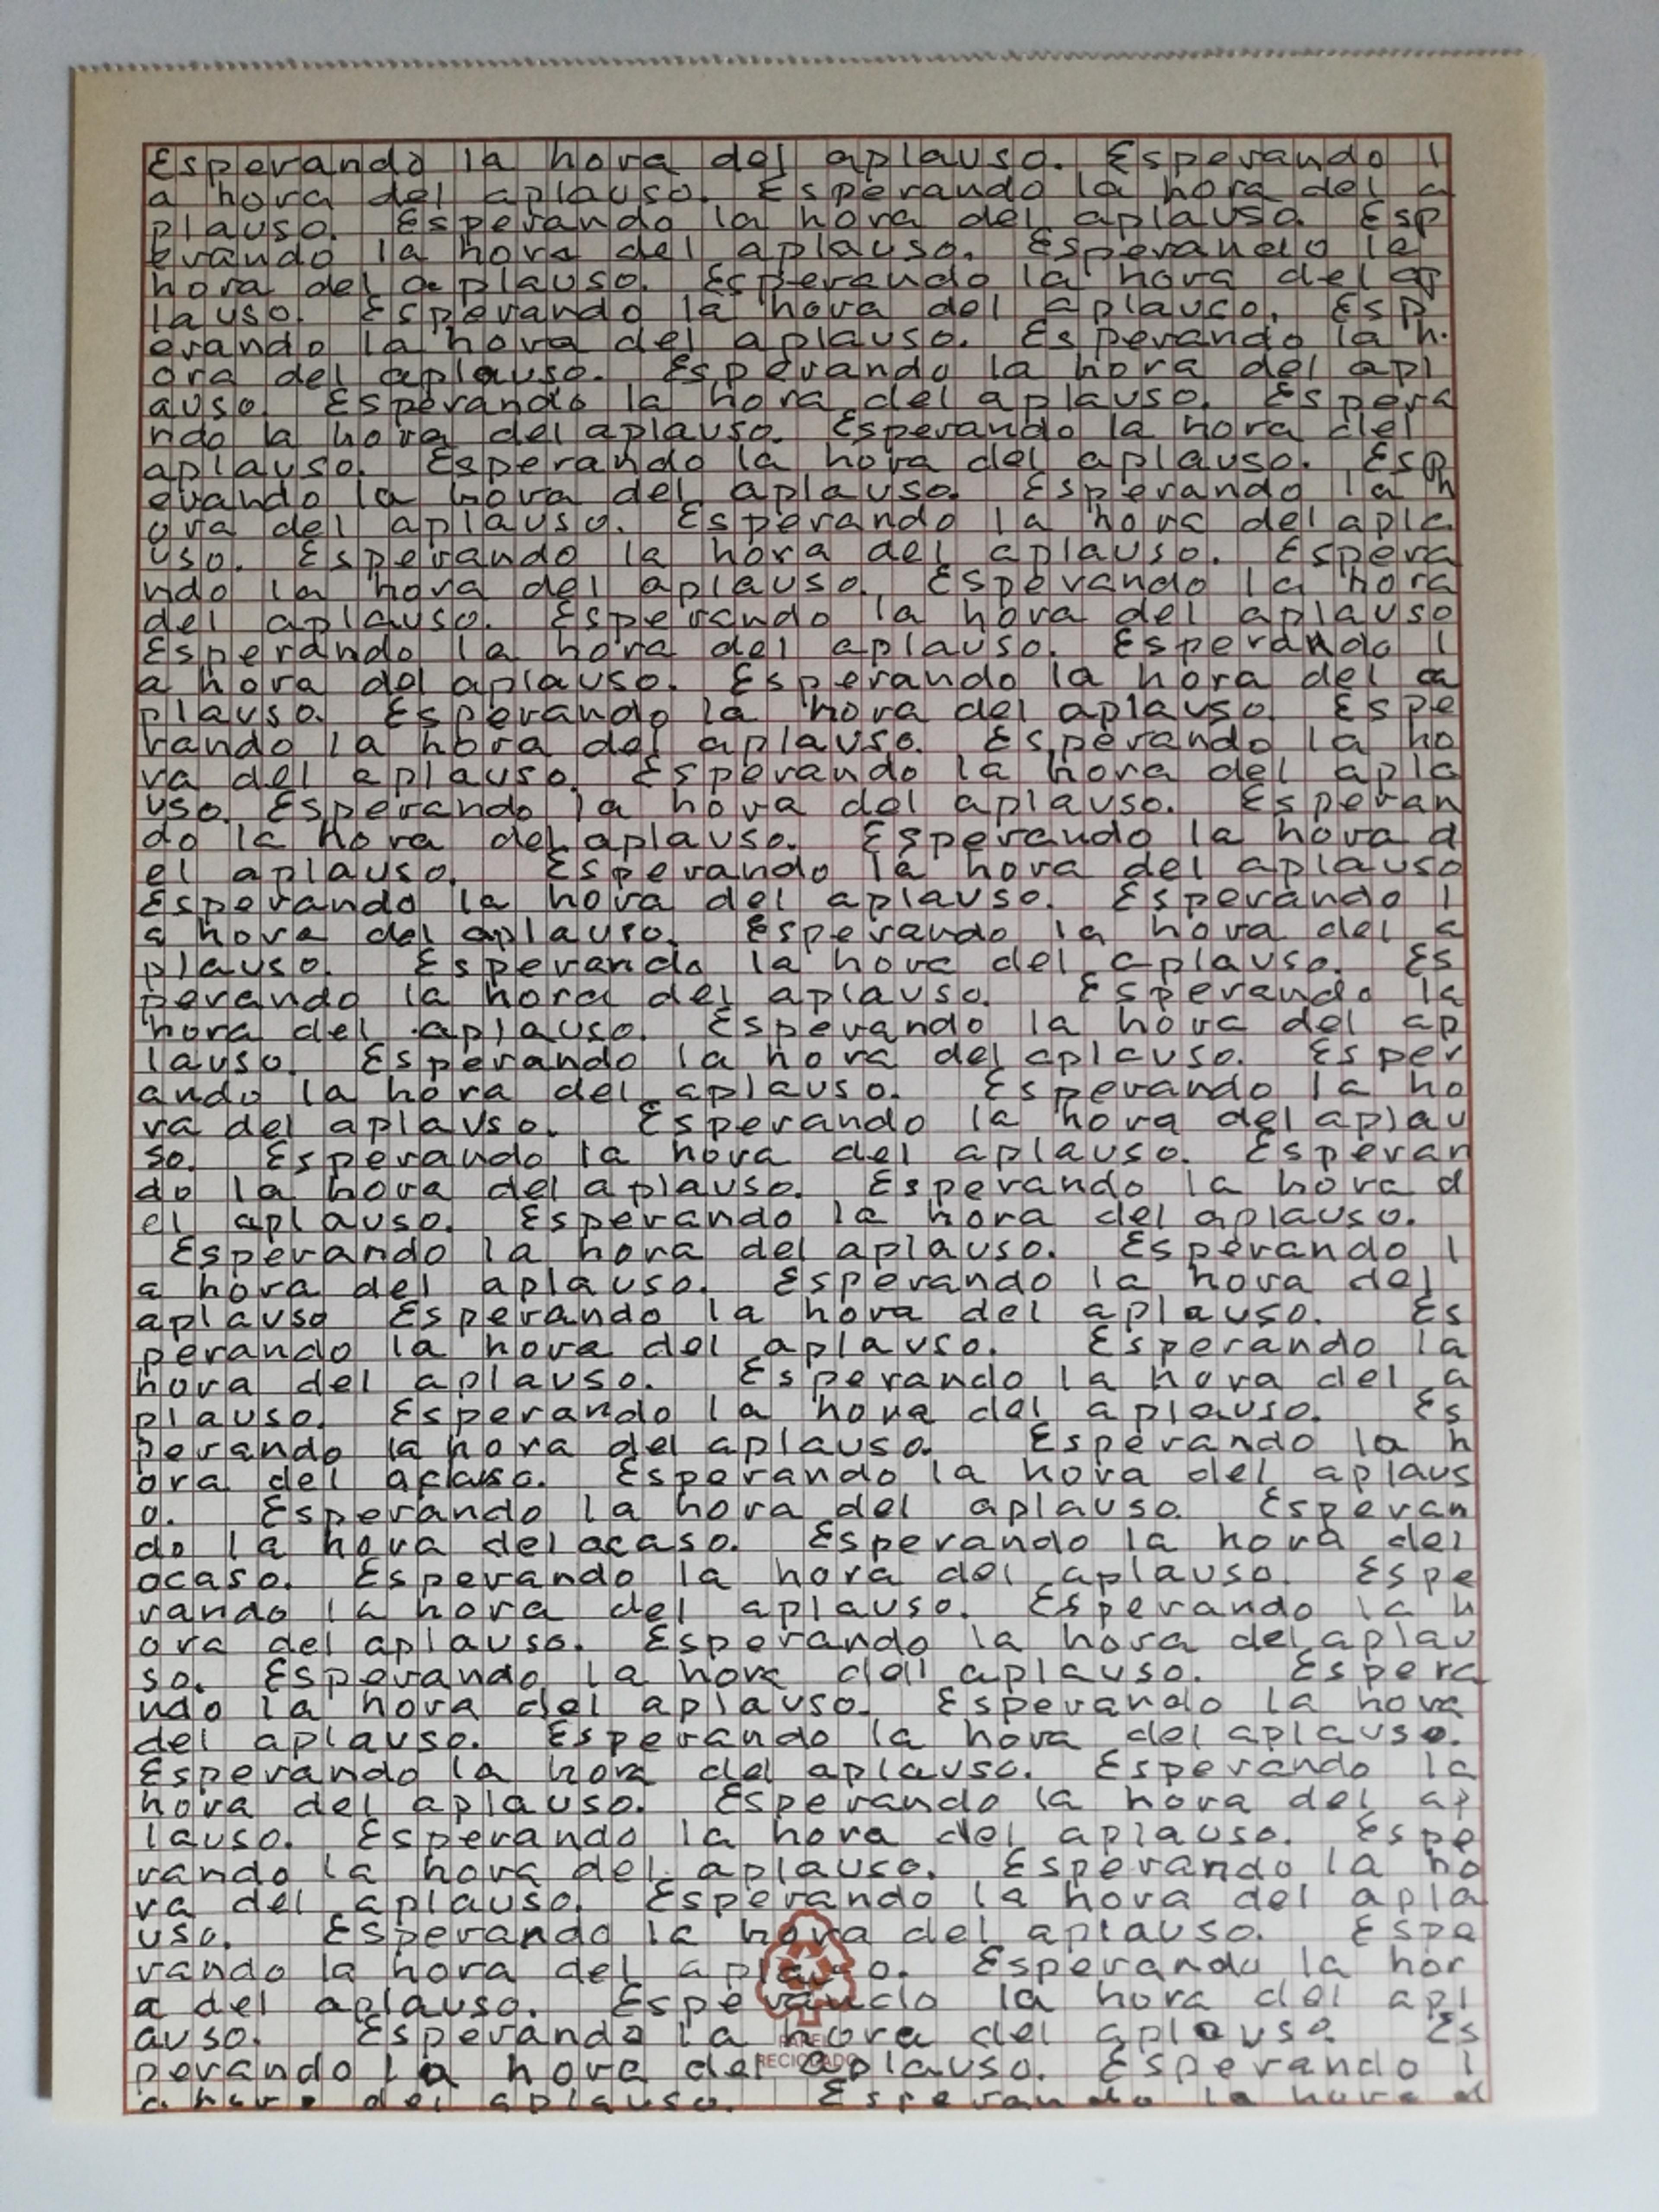 Esperando la hora del aplauso. Esperando l
a hora del aplauso. Esperando la hora del a
plauso. Esperando la hora del aplauso. Esp
erando la hora del aplauso. Esperando la
hora del aplauso. Esperando la hora del ap
lauso. Esperando la hora del aplauso. Esp
erando la hora del aplauso. Esperando la h
ora del aplauso. Esperando la hora del apl
auso. Esperando la hora del aplauso. Espera
ndo la hora del aplauso. Esperando la hora del
aplauso. Esperando la hora del aplauso. Esp
erando la hora del aplauso. Esperando la h
ora del aplauso. Esperando la hora del apla
uso. Esperando la hora del aplauso. Espera
ndo la hora del aplauso. Esperando la hora
del aplauso. Esperando la hora del aplauso
Esperando la hora del aplauso. Esperando l
a hora del aplauso. Esperando la hora del a
plauso. Esperando la hora del aplauso. Espe
rando la hora del aplauso. Esperando la ho
ra del aplauso. Esperando la hora del apla
uso. Esperando la hora del aplauso. Esperan
do la hora del aplauso. Esperando la hora d
el aplauso. Esperando la hora del aplauso
Esperando la hora del aplauso. Esperando l
a hora del aplauso. Esperando la hora del a
plauso. Esperando la hora del aplauso. Es
perando la hora del aplauso. Esperando la
hora del aplauso. Esperando la hora del ap
lauso. Esperando la hora del aplauso. Esper
ando la hora del aplauso. Esperando la ho
ra del aplauso. Esperando la hora del aplau
so. Esperando la hora del aplauso. Esperan
do la hora del aplauso. Esperando la hora d
el aplauso. Esperando la hora del aplauso.
Esperando la hora del aplauso. Esperando l
a hora del aplauso. Esperando la hora del
aplauso Esperando la hora del aplauso. Es
perando la hora del aplauso. Esperando la
hora del aplauso. Esperando la hora del a
plauso. Esperando la hora del aplauso. Es
perando la hora del aplauso. Esperando la h
ora del acaso. Esperando la hora del aplaus
o. Esperando la hora del aplauso. Esperan
do la hora del acaso. Esperando la hora del
ocaso. Esperando la hora del aplauso. Espe
rando la hora del aplauso. Esperando la h
ora del aplauso. Esperando la hora del aplau
so. Esperando la hora del aplauso. Espera
ndo la hora del aplauso. Esperando la hora
del aplauso. Esperando la hora del aplauso.
Esperando la hora del aplauso. Esperando la
hora del aplauso. Esperando la hora del ap
lauso. Esperando la hora del aplauso. Espe
rando la hora del aplauso. Esperando la ho
ra del aplauso. Esperando la hora del apla
uso. Esperando la hora del aplauso. Espe
rando la hora del aplauso. Esperando la hor
a del aplauso. Esperando la hora del apl
auso. Esperando la hora del aplauso. Es
PAPEL
perando la hora del aplauso. Esperando l
RECICLADO
a hora del aplauso. Esperando la hora d